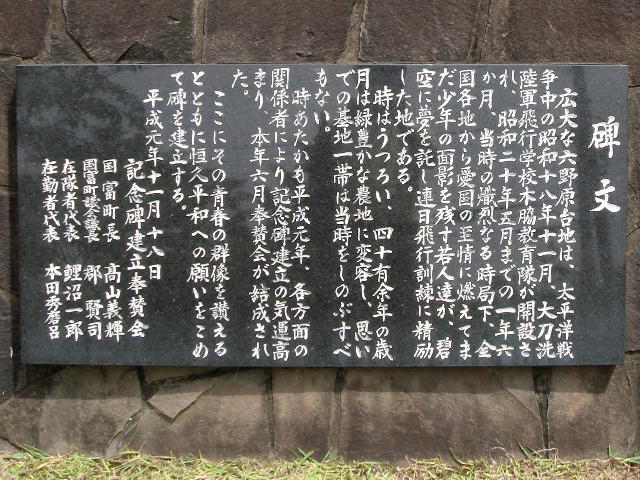 碑文
広大な六野原台地は、太平洋戦
争中の昭和十八年十一月、大刀洗
陸軍飛行学校木脇教育隊が開設さ
れ、昭和二十年五月までの一年六
か月、当時の熾烈なる時局下、全
国各地から愛国の至情に燃えてま
だ少年の面影を残す若人達が、碧
空に夢を託し連日飛行訓練に精励
した地である。
時はうつろい、四十有余年の歳
月は緑豊かな農地に変容し、思い
での基地一帯は当時をしのぶすべ
もない。
時あたかも平成元年、各方面の
関係者により記念碑建立の気運高
まり、本年六月奉賛会が結成され
た。
ここにその青春の群像を讃える
とともに恒久平和への願いをこめ
て碑を建立する。
平成元年十一月十八日
記念碑建立奉賛会
国富町長 高山義輝
国富町議会議長 郡賢司
在隊者代表 鯉沼一郎
在勤者代表 本田秀磨呂